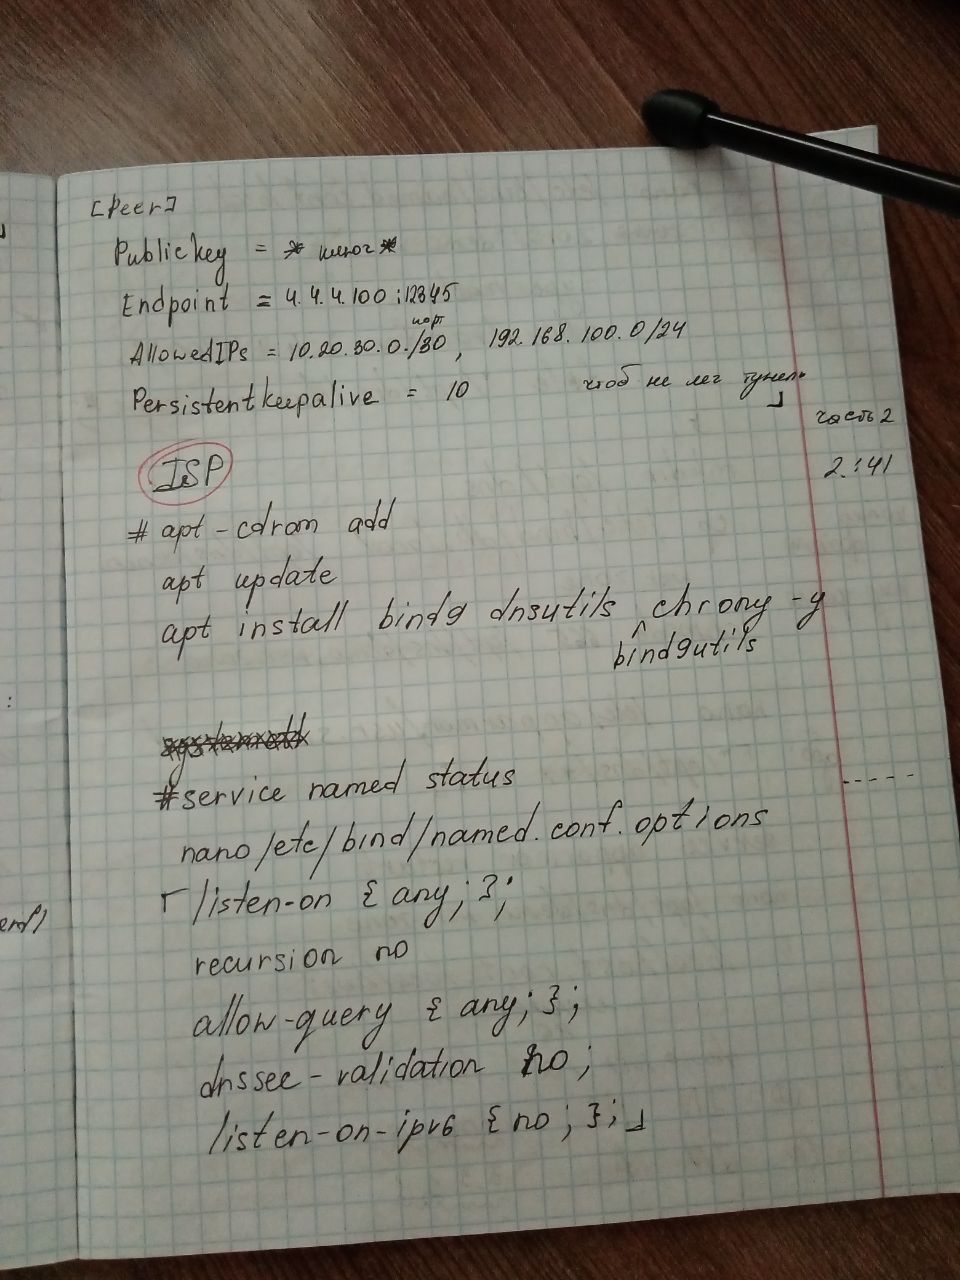 [Peer]
Publickey = * ключ *
Endpoint = 4.4.4.100:12345
порт
AllowedIPs = 10.20.30.0/30, 192.168.100.0/24
Persistentkeepalive = 10 чтоб не лег тунель ┘
часть 2
ISP
2:41
# apt-cdrom add
apt update
apt install bind9 dnsutils ^ chrony -y
bind9utils
#service named status
nano /etc/bind/named.conf.options
┌ listen-on { any; };
recursion no
allow-query { any; };
dnssec-validation no;
listen-on-ipv6 { no; }; ┘